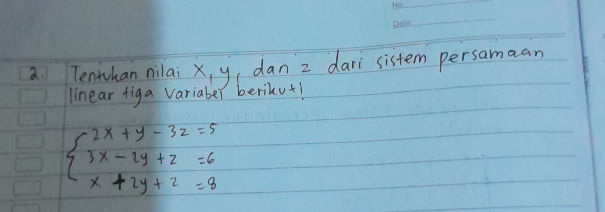 No.
Date:
2. Tentukan nilai x, y, dan z dari sistem persamaan
linear tiga variabel berikut!
2x + y - 3z = 5
3x - 2y + z = 6
x + 2y + z = 8